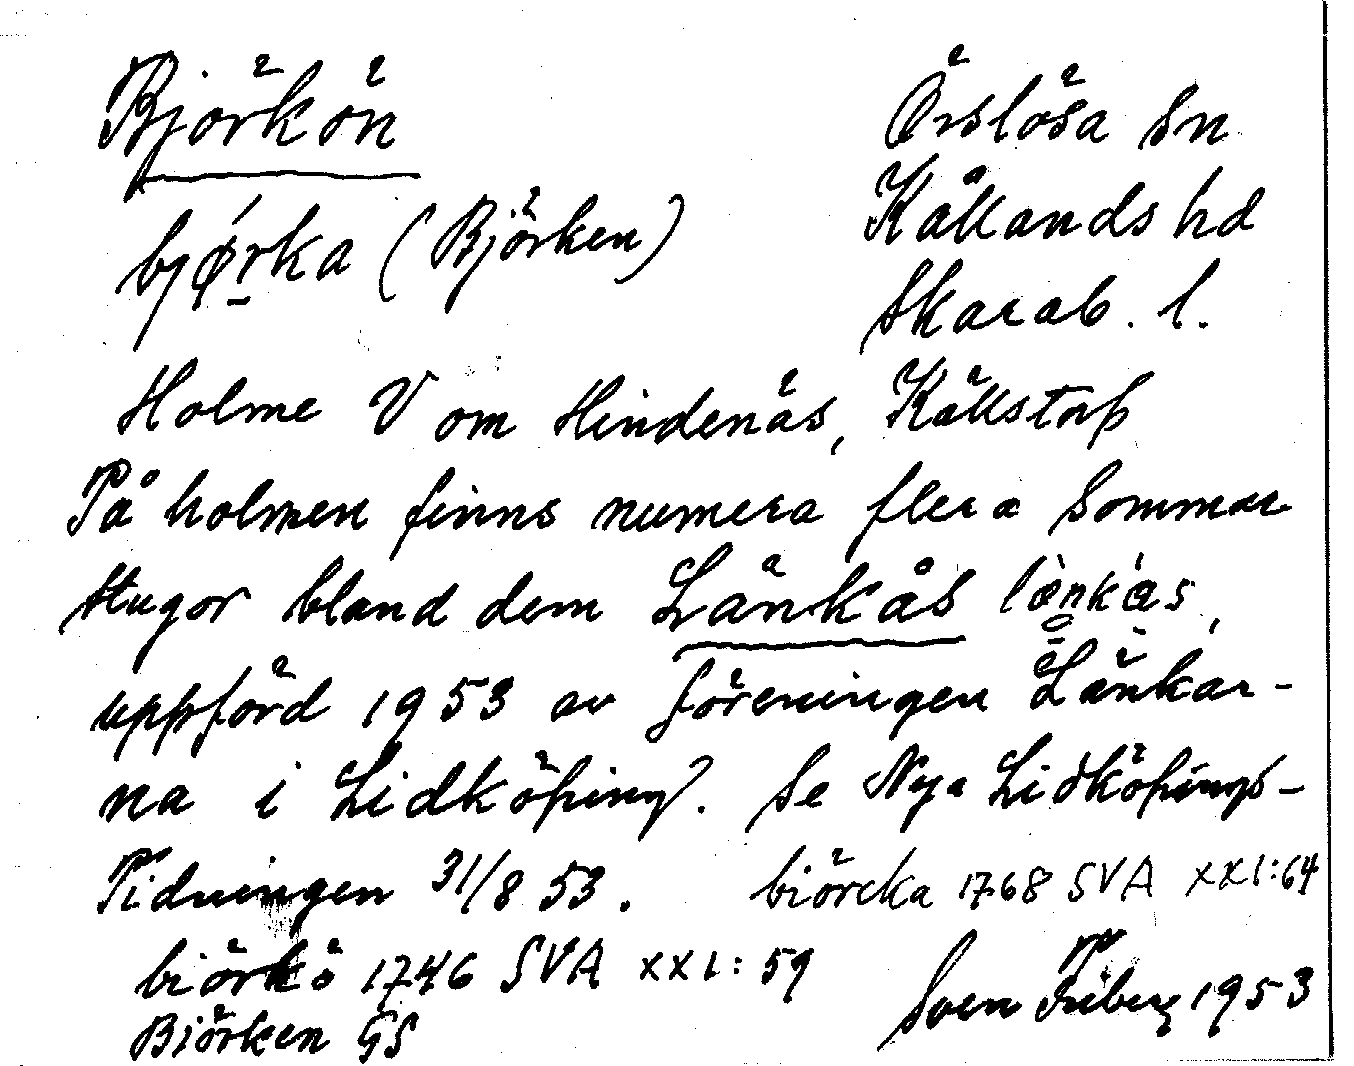 Björkön
Örslösa sn
Kållands hd
Skarab. l.
bjørka (Björken)
Holme V om Hindenäs, Källstorp
På holmen finns numera flera sommar
stugor bland dem Länkås
uppförd 1953 av föreningen Länkar-
na i Lidköping. Se Nya Lidköpings-
Tidningen 31/8 53.
biörcka 1768 SVA XXI:64
biörkö 1746 SVA XXI:59
Björken GS
Sven Friberg 1953